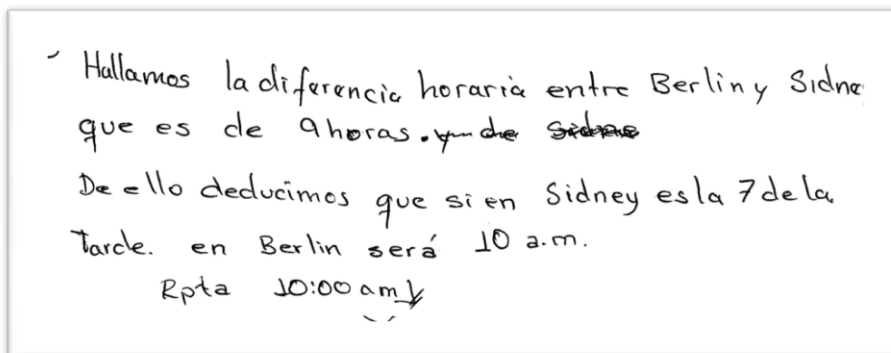 Hallamos la diferencia horaria entre Berlin y Sidne
que es de 9horas.
De ello deducimos que si en Sidney es la 7 de la
Tarde. en Berlin será 10 a.m.
Rpta 10:00 am